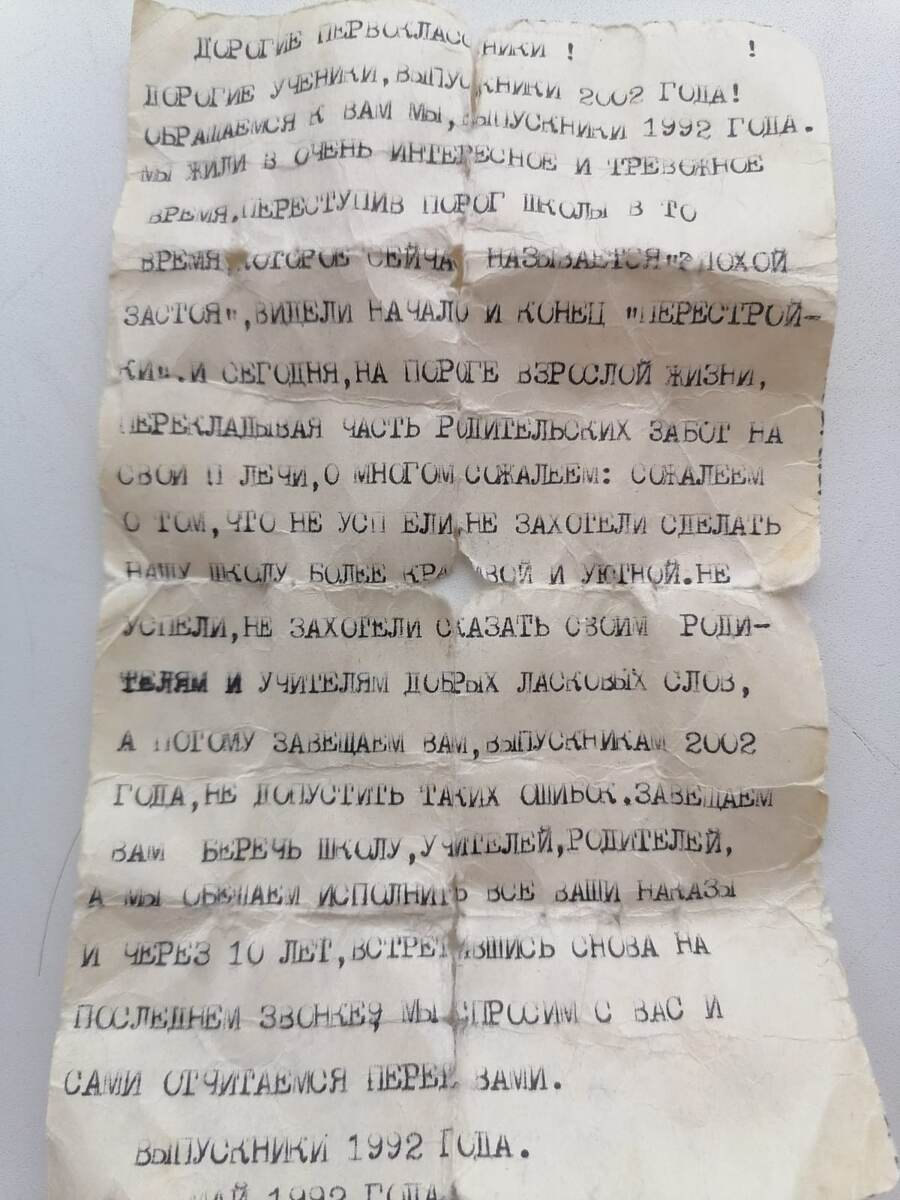 ДОРОГИЕ ПЕРВОКЛАССНИКИ ! !
ДОРОГИЕ УЧЕНИКИ, ВЫПУСКНИКИ 2002 ГОДА!
ОБРАЩАЕМСЯ К ВАМ МЫ, ВЫПУСКНИКИ 1992 ГОДА.
МЫ ЖИЛИ В ОЧЕНЬ ИНТЕРЕСНОЕ И ТРЕВОЖНОЕ
ВРЕМЯ. ПЕРЕСТУПИВ ПОРОГ ШКОЛЫ В ТО
ВРЕМЯ, КОТОРОЕ СЕЙЧАС НАЗЫВАЕТСЯ "ЭПОХОЙ
ЗАСТОЯ", ВИДЕЛИ НАЧАЛО И КОНЕЦ "ПЕРЕСТРОЙ-
КИ". И СЕГОДНЯ, НА ПОРОГЕ ВЗРОСЛОЙ ЖИЗНИ,
ПЕРЕКЛАДЫВАЯ ЧАСТЬ РОДИТЕЛЬСКИХ ЗАБОТ НА
СВОИ П ЛЕЧИ, О МНОГОМ СОЖАЛЕЕМ: СОЖАЛЕЕМ
О ТОМ, ЧТО НЕ УСП ЕЛИ, НЕ ЗАХОТЕЛИ СДЕЛАТЬ
НАШУ ШКОЛУ БОЛЕЕ КРАСИВОЙ И УЮТНОЙ. НЕ
УСПЕЛИ, НЕ ЗАХОТЕЛИ СКАЗАТЬ СВОИМ РОДИ-
ТЕЛЯМ И УЧИТЕЛЯМ ДОБРЫХ ЛАСКОВЫХ СЛОВ,
А ПОТОМУ ЗАВЕЩАЕМ ВАМ, ВЫПУСКНИКАМ 2002
ГОДА, НЕ ДОПУСТИТЬ ТАКИХ ОШИБОК. ЗАВЕЩАЕМ
ВАМ БЕРЕЧЬ ШКОЛУ, УЧИТЕЛЕЙ, РОДИТЕЛЕЙ,
А МЫ ОБЕЩАЕМ ИСПОЛНИТЬ ВСЕ ВАШИ НАКАЗЫ
И ЧЕРЕЗ 10 ЛЕТ, ВСТРЕТИВШИСЬ СНОВА НА
ПОСЛЕДНЕМ ЗВОНКЕ, МЫ СПРОСИМ С ВАС И
САМИ ОТЧИТАЕМСЯ ПЕРЕД ВАМИ.
ВЫПУСКНИКИ 1992 ГОДА.
МАЙ 1992 ГОДА